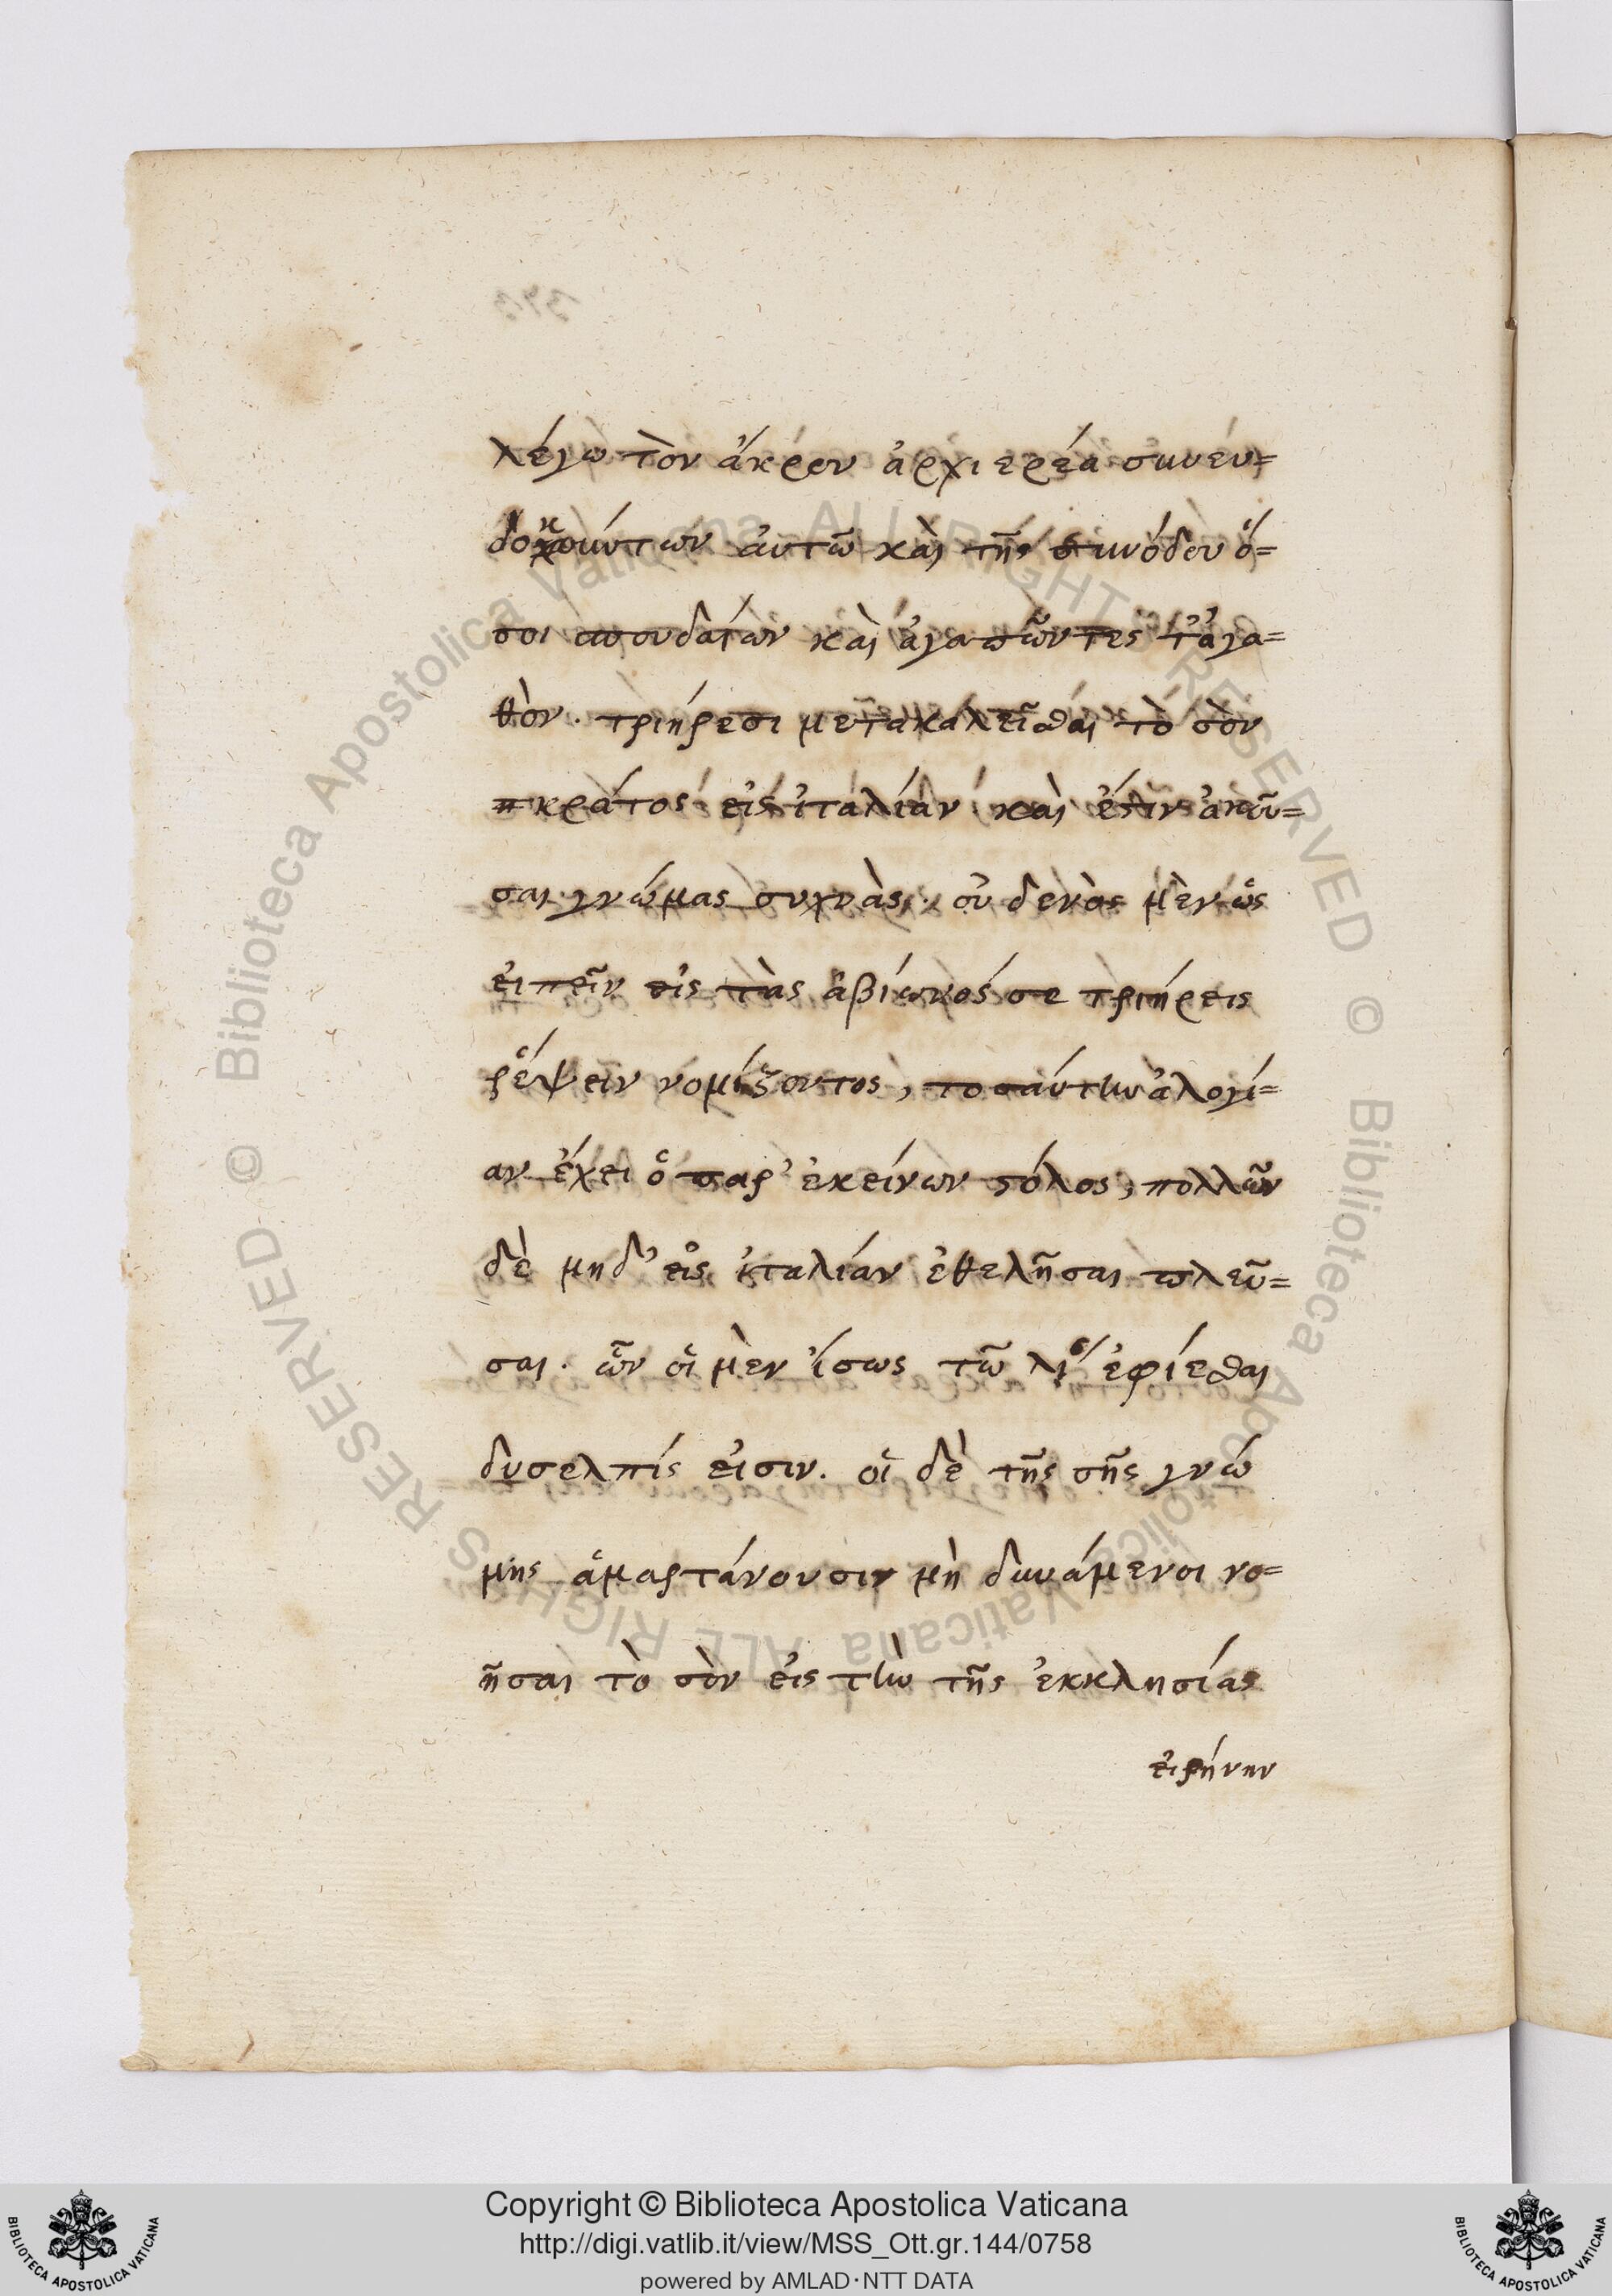 λέγω τὸν ἄκρον ἀρχιερέα συνευ=
δοκούντων ἀυτῶ καὶ τῆς συνόδου ὅ=
σοι σπουδαίων καὶ ἀγαπῶντες τἀγα=
θὸν. τριήρεσι μετακαλεῖσθαι τὸ σὸν
κράτος εἰς ἰταλίαν καὶ ἔστιν ἀκοῦ=
σαι γνώμας συχνὰς. οὐδενὸς μὲν ὡς
εἰπεῖν εἰς τὰς ἀβίωνός σε τριήρεις
ῥέψειν νομίζοντος, τοσαύτην ἀλογί=
αν ἔχει ὁ παρ' ἐκείνων στόλος, πολλῶν
δὲ μηδ' εἰς ἰταλίαν ἐθελῆσαι πλεῦ=
σαι. ὧν οἱ μὲν ἴσως τῶ ἐφίεσθαι
δυσελπίς εἰσιν. οἱ δὲ τῆς σῆς γνώ
μης ἁμαρτάνουσιν μὴ δυνάμενοι νο=
ῆσαι τὸ σὸν εἰς τὴν τῆς ἐκκλησίας
εἰρήνην
© Biblioteca Apostolica Vaticana ALL RIGHTS RESERVED © Biblioteca Apostolica Vaticana ALL RIGHTS RESERVED
Copyright © Biblioteca Apostolica Vaticana
http://digi.vatlib.it/view/MSS_Ott.gr.144/0758
powered by AMLAD·NTT DATA
BIBLIOTECA APOSTOLICA VATICANA
BIBLIOTECA APOSTOLICA VATICANA